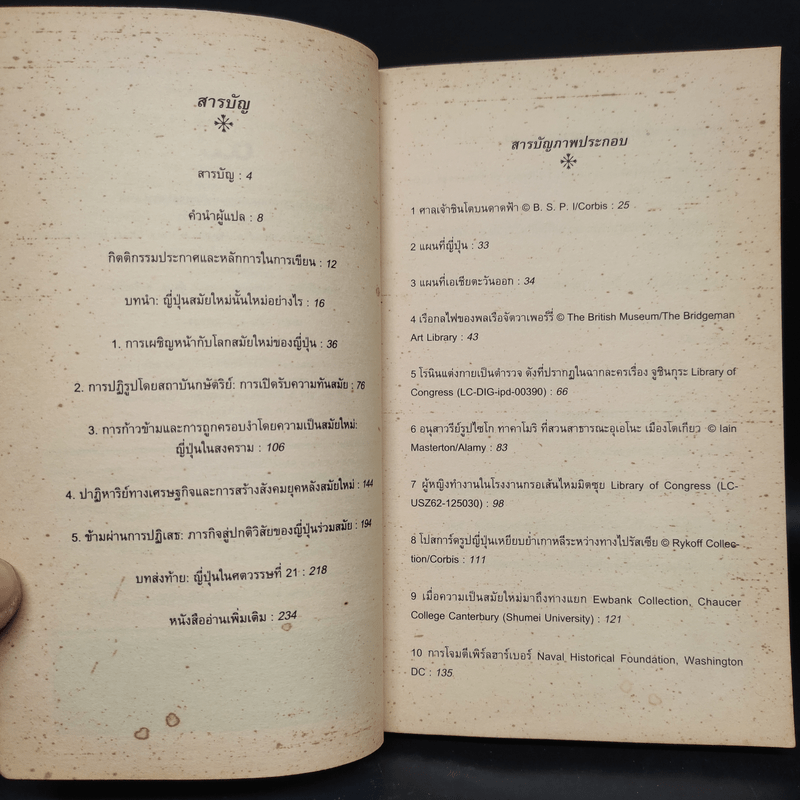 สารบัญ
สารบัญ : 4
คำนำผู้แปล : 8
กิตติกรรมประกาศและหลักการในการเขียน : 12
บทนำ: ญี่ปุ่นสมัยใหม่นั้นใหม่อย่างไร : 16
1. การเผชิญหน้ากับโลกสมัยใหม่ของญี่ปุ่น : 36
2. การปฏิรูปโดยสถาบันกษัตริย์: การเปิดรับความทันสมัย : 76
3. การก้าวข้ามและการถูกครอบงำโดยความเป็นสมัยใหม่:
ญี่ปุ่นในสงคราม : 106
4. ปาฏิหาริย์ทางเศรษฐกิจและการสร้างสังคมยุคหลังสมัยใหม่ : 144
5. ข้ามผ่านการปฏิเสธ: ภารกิจสู่ปกติวิสัยของญี่ปุ่นร่วมสมัย : 194
บทส่งท้าย: ญี่ปุ่นในศตวรรษที่ 21 : 218
หนังสืออ่านเพิ่มเติม : 234
สารบัญภาพประกอบ
1 ศาลเจ้าชินโตบนดาดฟ้า © B. S. P. I/Corbis : 25
2 แผนที่ญี่ปุ่น : 33
3 แผนที่เอเชียตะวันออก : 34
4 เรือกลไฟของพลเรือจัตวาเพอร์รี่ © The British Museum/The Bridgeman
Art Library : 43
5 โรนินแต่งกายเป็นตำรวจ ดังที่ปรากฏในฉากละครเรื่อง จูชินกุระ Library of
Congress (LC-DIG-ipd-00390) : 66
6 อนุสาวรีย์รูปไซโก ทาคาโมริ ที่สวนสาธารณะอุเอโนะ เมืองโตเกียว © Iain
Masterton/Alamy : 83
7 ผู้หญิงทำงานในโรงงานกรอเส้นไหมมิตซุย Library of Congress (LC-
USZ62-125030) : 98
8 โปสการ์ดรูปญี่ปุ่นเหยียบย่ำเกาหลีระหว่างทางไปรัสเซีย © Rykoff Collec-
tion/Corbis : 111
9 เมื่อความเป็นสมัยใหม่มาถึงทางแยก Ewbank Collection, Chaucer
College Canterbury (Shumei University) : 121
10 การโจมตีเพิร์ลฮาร์เบอร์ Naval Historical Foundation, Washington
DC : 135